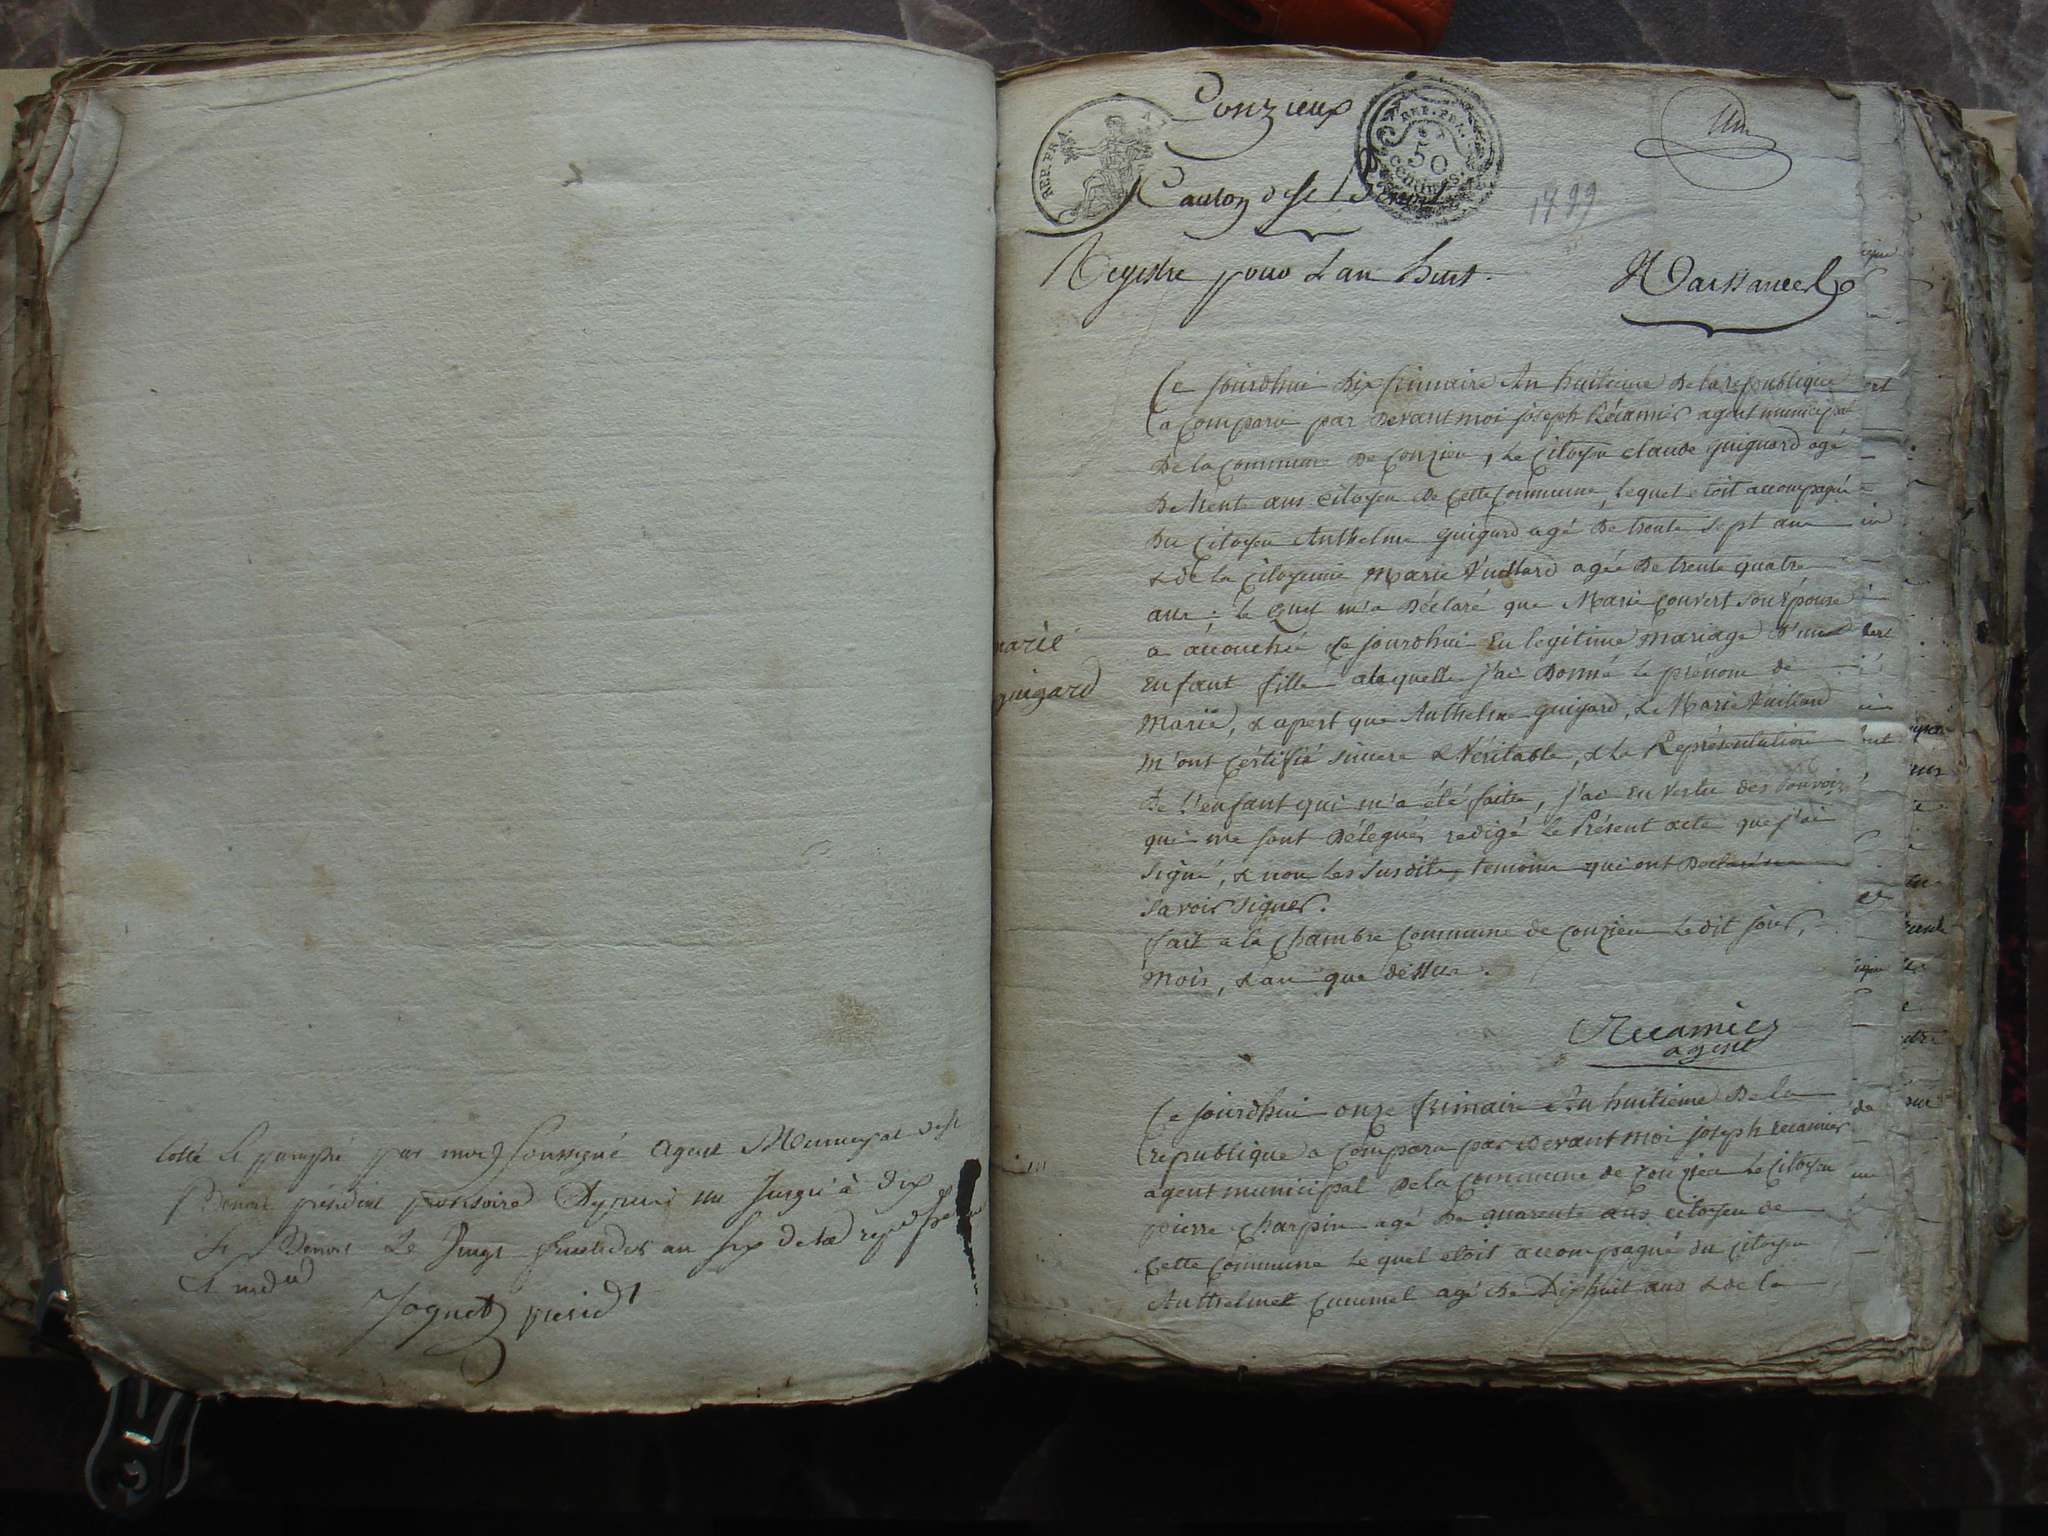 Cotté & paraphé par moi soussigné agent Municipal de St
Benoit président provisoire depuis un jusqu'à dix
St Benoit le vingt an six de la
Jaquet présidt
Conzieux
REP. FRA.
REP. FRA.
50
centimes
Un
Canton de St Benoit
1799
Registre pour L'an huit.
Naissances
Ce jourdhui dix frimaire An huitieme De la republique
a comparu par Devant moi joseph Récamier agent municipal
De la Commune De Conzieu, Le Citoyen claude guignard agé
De trente ans citoyen De Cette Commune, lequel etoit accompagné
Du Citoyen Anthelme guigard agé De trente sept ans
& de la Citoyenne Marie Vuillard agée De trente quatre
ans; le quel m'a Déclaré que Marie Couvert son Epouse
a accouchée Ce jourdhui En legitime mariage d'un
Enfant fille a laquelle j'ai Donné le prenom de
Marie, & apert que Anthelme guigard, & Marie Vuillard
m'ont Cértifié sincere & Véritable, & la Représentation
De l'enfant qui m'a été faite, j'ai En vertu des pouvoirs
qui me sont Délegués redigé le Présent acte que j'ai
Signé, & non Les Susdits temoins qui ont Declaré ne
Savoir Signer.
fait a la Chambre Commune de Conzieu Ledit jour,
mois, & an que dessus.
marie
guigard
Recamier
agent
Ce jourdhui onze frimaire An huitieme De la
republique a Comparu par Devant moi joseph recamier
agent municipal De la Commune de Conzieu Le Citoyen
pierre Charpin agé De quarente ans citoyen de
Cette Commune Lequel etoit accompagné du Citoyen
Anthelme Cucumel agé De Dixhuit ans & de la